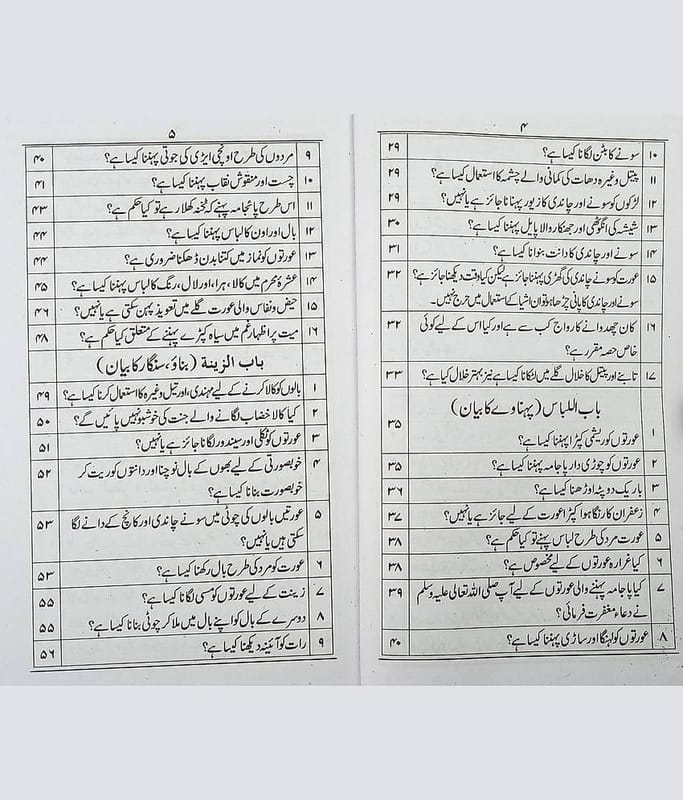 ۴
۱۰ سونے کا بٹن لگانا کیسا ہے؟ ۲۹
۱۱ پیتل وغیرہ دھات کی کمانی والے چشمہ کا استعمال کیسا ہے؟ ۲۹
۱۲ لڑکوں کو سونے اور چاندی کا زیور پہنانا جائز ہے یا نہیں؟ ۲۹
۱۳ شیشہ کی انگوٹھی اور جھنکار والا پایل پہننا کیسا ہے؟ ۳۰
۱۴ سونے اور چاندی کا دانت بنوانا کیسا ہے؟ ۳۱
۱۵ عورت کو سونے چاندی کی گھڑی پہننا جائز ہے لیکن کیا وقت دیکھنا جائز ہے؟ ۳۲
سونے اور چاندی کا پانی چڑھا ہوا تو ان اشیا کے استعمال میں حرج نہیں۔
۱۶ کان چھدوانے کا رواج کب سے ہے اور کیا اس کے لیے کوئی ۳۲
خاص حصہ مقرر ہے؟
۱۷ تانبے اور پیتل کا خلال گلے میں لٹکانا کیسا ہے نیز بہتر خلال کیا ہے؟ ۳۳
باب اللباس (پہناوے کا بیان)
۱ عورتوں کو ریشمی کپڑا پہننا کیسا ہے؟ ۳۵
۲ عورتوں کو چوڑی دار پاجامہ پہننا کیسا ہے؟ ۳۵
۳ باریک دوپٹہ اوڑھنا کیسا ہے؟ ۳۶
۴ زعفران کا رنگا ہوا کپڑا عورت کے لیے جائز ہے یا نہیں؟ ۳۷
۵ عورت مرد کی طرح لباس پہنے تو کیا حکم ہے؟ ۳۸
۶ کیا غرارہ عورتوں کے لیے مخصوص ہے؟ ۳۸
۷ کیا پاجامہ پہننے والی عورتوں کے لیے آپ صلی اللہ تعالی علیہ وسلم ۳۹
نے دعاء مغفرت فرمائی؟
۸ عورتوں کو لہنگا اور ساڑی پہننا کیسا ہے؟ ۴۰
۵
۹ مردوں کی طرح اونچی ایڑی کی جوتی پہننا کیسا ہے؟ ۴۰
۱۰ چست اور منقوش نقاب پہننا کیسا ہے؟ ۴۱
۱۱ اس طرح پائجامہ پہنے کہ ٹخنہ کھلا رہے تو کیا حکم ہے؟ ۴۳
۱۲ بال اور اون کا لباس پہننا کیسا ہے؟ ۴۴
۱۳ عورتوں کو نماز میں کتنا بدن ڈھکنا ضروری ہے؟ ۴۴
۱۴ عشرۂ محرم میں کالا، ہرا، اور لال، رنگ کا لباس پہننا کیسا ہے؟ ۴۵
۱۵ حیض و نفاس والی عورت گلے میں تعویذ پہن سکتی ہے یا نہیں؟ ۴۶
۱۶ میت پر اظہار غم میں سیاہ کپڑے پہننے کے متعلق کیا حکم ہے؟ ۴۸
باب الزینة (بناؤ، سنگار کا بیان)
۱ بالوں کو کالا کرنے کے لیے مہندی، اور تیل وغیرہ کا استعمال کرنا کیسا ہے؟ ۴۹
۲ کیا کالا خضاب لگانے والے جنت کی خوشبو نہیں پائیں گے؟ ۵۰
۳ عورتوں کو ٹکلی اور سیندور لگانا جائز ہے یا نہیں؟ ۵۱
۴ خوبصورتی کے لیے بھوں کے بال نوچنا اور دانتوں کو ریت کر ۵۲
خوبصورت بنانا کیسا ہے؟
۵ عورتیں بالوں کی چوٹی میں سونے چاندی اور کانچ کے دانے لگا ۵۳
سکتی ہیں یا نہیں؟
۶ عورت کو مرد کی طرح بال رکھنا کیسا ہے؟ ۵۳
۷ زینت کے لیے عورتوں کو مسی لگانا کیسا ہے؟ ۵۵
۸ دوسرے کے بال کو اپنے بال میں ملا کر چوٹی بنانا کیسا ہے؟ ۵۵
۹ رات کو آئینہ دیکھنا کیسا ہے؟ ۵۶